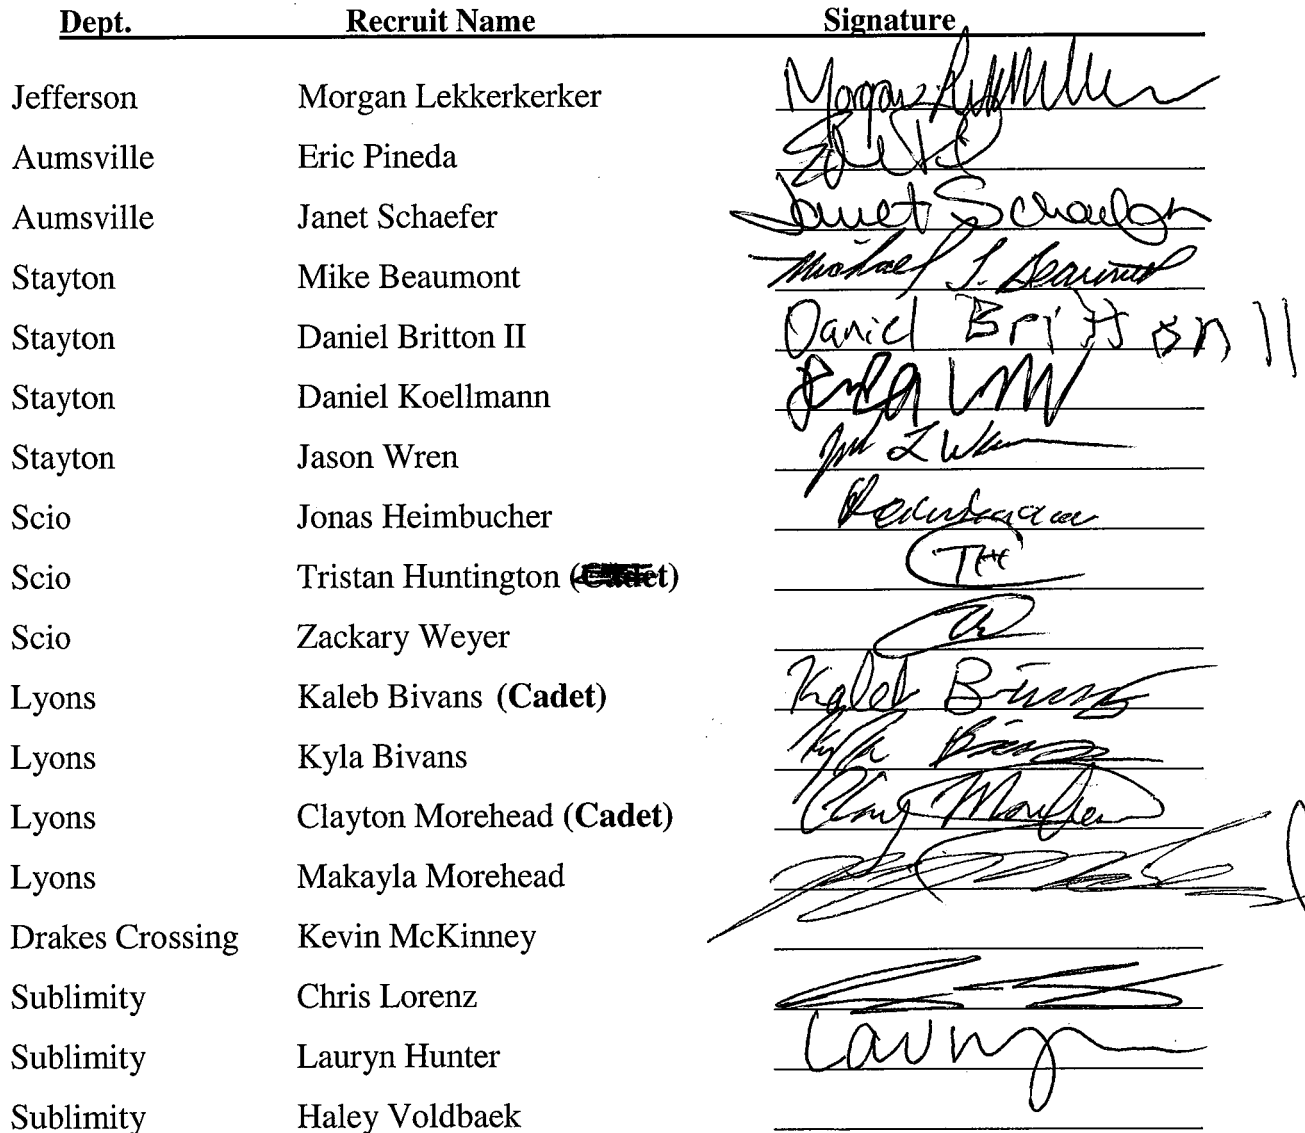 Dept. Recruit Name Signature
Jefferson Morgan Lekkerkerker Morgan
Aumsville Eric Pineda
Aumsville Janet Schaefer Janet Schaefer
Stayton Mike Beaumont Michael J. Beaumont
Stayton Daniel Britton II Daniel Britton II
Stayton Daniel Koellmann
Stayton Jason Wren
Scio Jonas Heimbucher
Scio Tristan Huntington (Cadet) TH
Scio Zackary Weyer
Lyons Kaleb Bivans (Cadet) Kaleb Bivans
Lyons Kyla Bivans Kyla Bivans
Lyons Clayton Morehead (Cadet)
Lyons Makayla Morehead
Drakes Crossing Kevin McKinney
Sublimity Chris Lorenz
Sublimity Lauryn Hunter Lauryn
Sublimity Haley Voldbaek